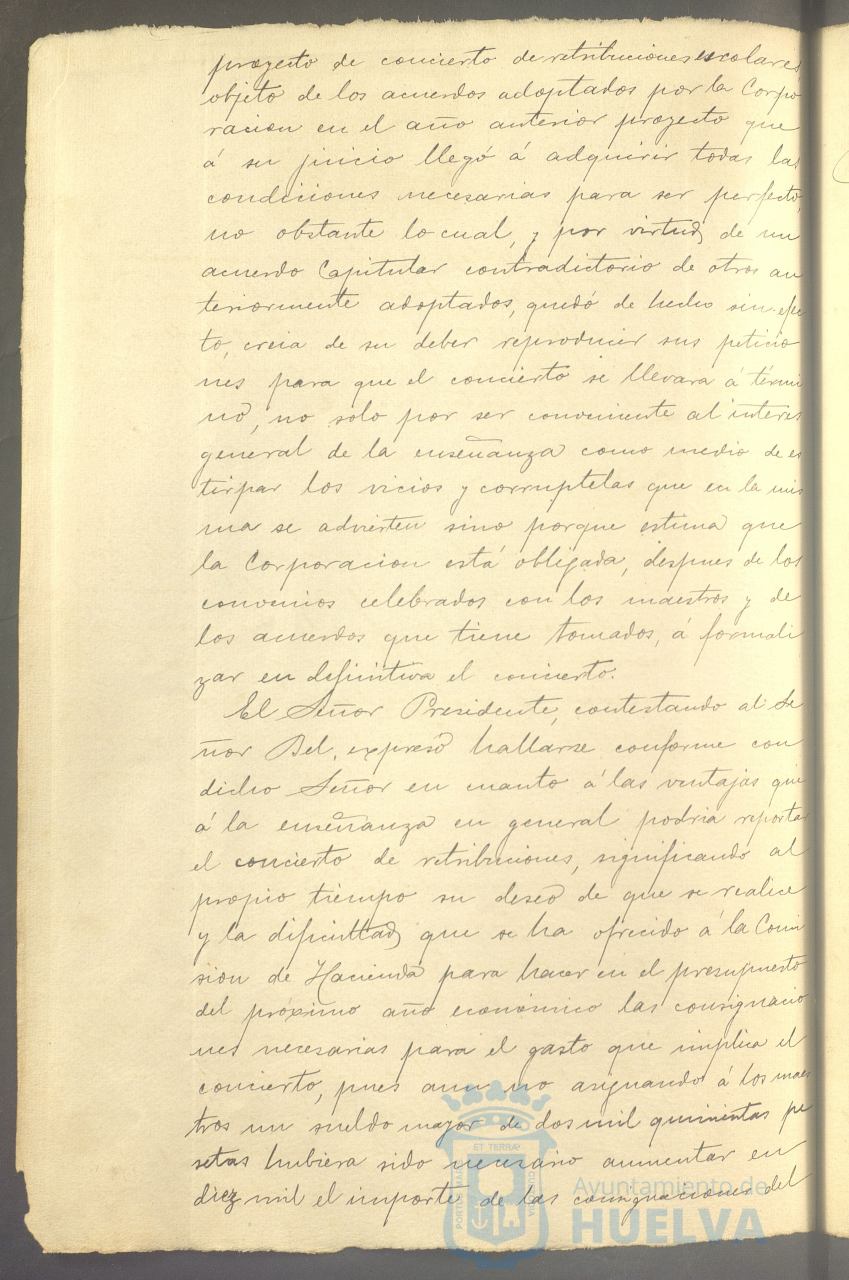 proyecto de concierto de retribuciones escolares
objeto de los acuerdos adoptados por la Corpo
racion en el año anterior proyecto que
á su juicio llegó á adquirir todas las
condiciones necesarias para ser perfecto,
no obstante lo cual, y por virtud de un
acuerdo Capitular contradictorio de otros an
teriormente adoptados, quedó de hecho sin efec
to, creia de su deber reproducir sus peticio
nes para que el concierto se llevara á térmi
no, no solo por ser conveniente al interes
general de la enseñanza como medio de es
tirpar los vicios y corruptelas que en la mis
ma se advierten sino porque estima que
la Corporacion está obligada, despues de los
convenios celebrados con los maestros y de
los acuerdos que tiene tomados, á formali
zar en definitiva el concierto.
El Señor Presidente, contestando al Se
ñor Bel, expresó hallarse conforme con
dicho Señor en cuanto á las ventajas que
á la enseñanza en general podria reportar
el concierto de retribuciones, significando al
propio tiempo su deseo de que se realice
y la dificultad que se ha ofrecido á la Comi
sion de Hacienda para hacer en el presupuesto
del próximo año económico las consignacio
nes necesarias para el gasto que implica el
concierto, pues aun no asignando á los maes
tros un sueldo mayor de dos mil quinientas pe
setas hubiera sido necesario aumentar en
diez mil el importe de las consignaciones del
ET TERRÆ
Ayuntamiento de
HUELVA